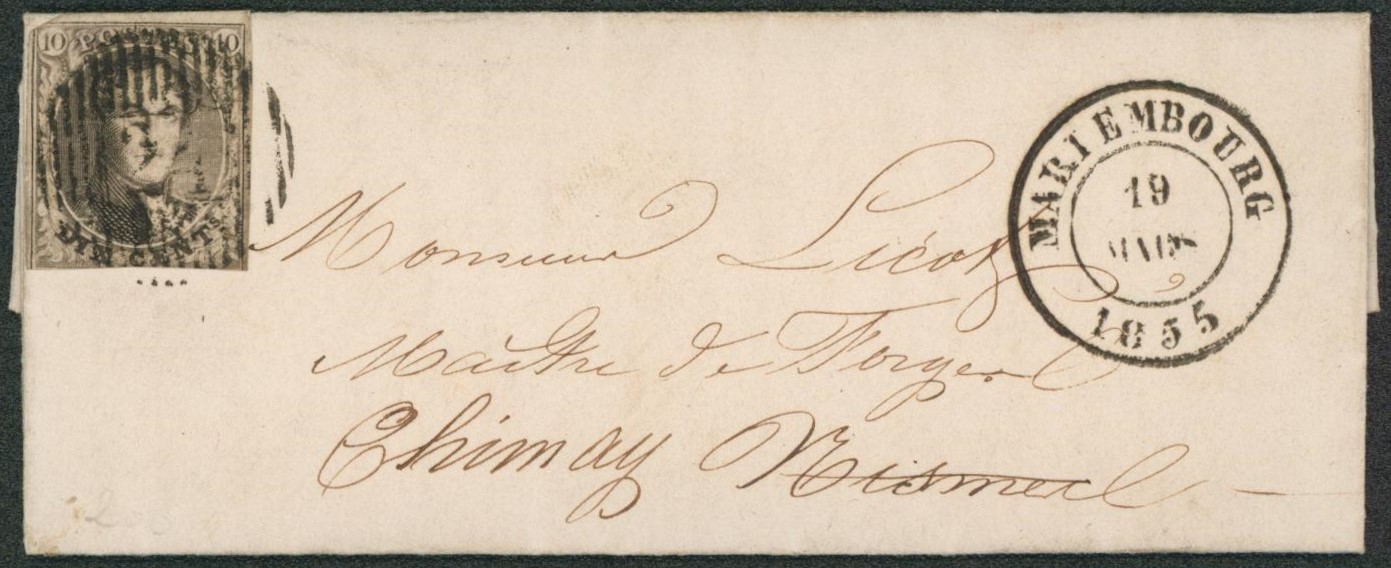 10 POSTES 10
DIX CENTS.
MARIEMBOURG
19
MARS
1855
Monsieur Licot
Maître de Forges
Chimay Nismes